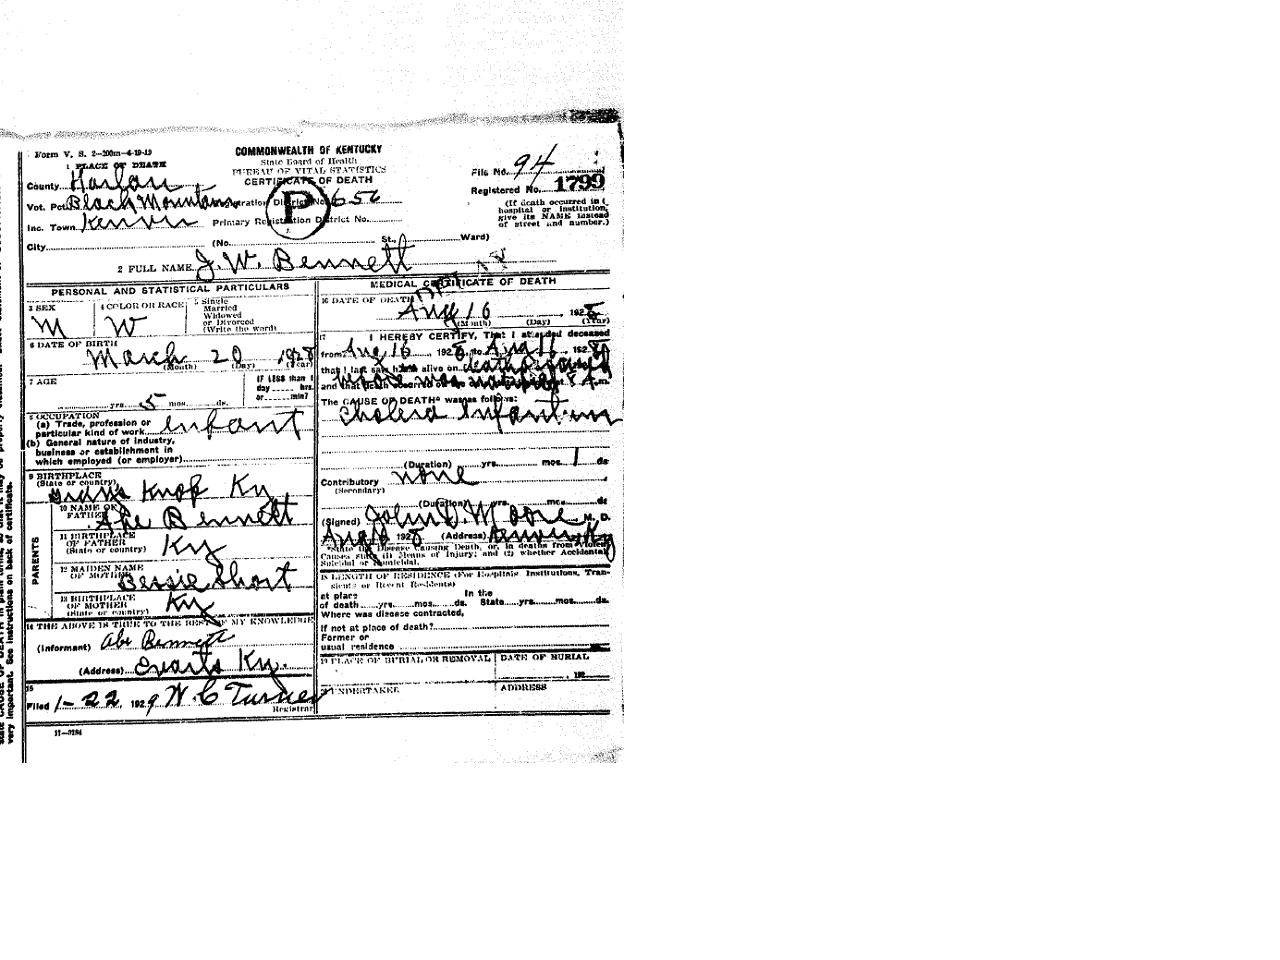 Form V. S. 2—200m—4-19-19
COMMONWEALTH OF KENTUCKY
State Board of Health
BUREAU OF VITAL STATISTICS
CERTIFICATE OF DEATH
1 PLACE OF DEATH
File No. 94
Registered No. 1799
County Harlan
Vot. Pct. Black Mountain Registration District No. 656
Inc. Town Kenvir Primary Registration District No.
(If death occurred in a hospital or institution, give its NAME instead of street and number.)
City (No. St., Ward)
P
2 FULL NAME J. W. Bennett
PERSONAL AND STATISTICAL PARTICULARS
3 SEX M
4 COLOR OR RACE W
5 Single
Married
Widowed
or Divorced
(Write the word)
6 DATE OF BIRTH
March 20 1928
(Month) (Day) (Year)
7 AGE
yrs. 5 mos. ds.
IF LESS than 1
day hrs.
or min?
8 OCCUPATION
(a) Trade, profession or
particular kind of work infant
(b) General nature of industry,
business or establishment in
which employed (or employer)
9 BIRTHPLACE
(State or country)
Knop Ky
PARENTS
10 NAME OF
FATHER Abe Bennett
11 BIRTHPLACE
OF FATHER
(State or country) Ky
12 MAIDEN NAME
OF MOTHER Bessie Short
13 BIRTHPLACE
OF MOTHER
(State or country) Ky
14 THE ABOVE IS TRUE TO THE BEST OF MY KNOWLEDGE
(Informant) Abe Bennett
(Address) Evarts Ky.
15
Filed 1-22, 1929 W C Turner
Registrar
11—3184
MEDICAL CERTIFICATE OF DEATH
16 DATE OF DEATH
Aug 16 1928
(Month) (Day) (Year)
17 I HEREBY CERTIFY, That I attended deceased
from Aug 16 1928, to Aug 16, 1928
that I last saw h alive on
and that death occurred on
The CAUSE OF DEATH* was as follows:
Cholera Infantum
(Duration) yrs. mos. 1 ds
Contributory none
(Secondary)
(Duration) yrs. mos. ds
(Signed) John D. Moore, M. D.
Aug 1928 (Address) Kenvir Ky
*State the Disease Causing Death, or, in deaths from Violent
Causes state (1) Means of Injury; and (2) whether Accidental,
Suicidal or Homicidal.
18 LENGTH OF RESIDENCE (For Hospitals, Institutions, Tran-
sients or Recent Residents)
at place In the
of death yrs. mos. ds. State yrs. mos. ds.
Where was disease contracted,
If not at place of death?
Former or
usual residence
19 PLACE OF BURIAL OR REMOVAL DATE OF BURIAL
192
20 UNDERTAKER ADDRESS
state CAUSE OF DEATH in plain terms, so that it may be properly classified.
very important. See instructions on back of certificate.